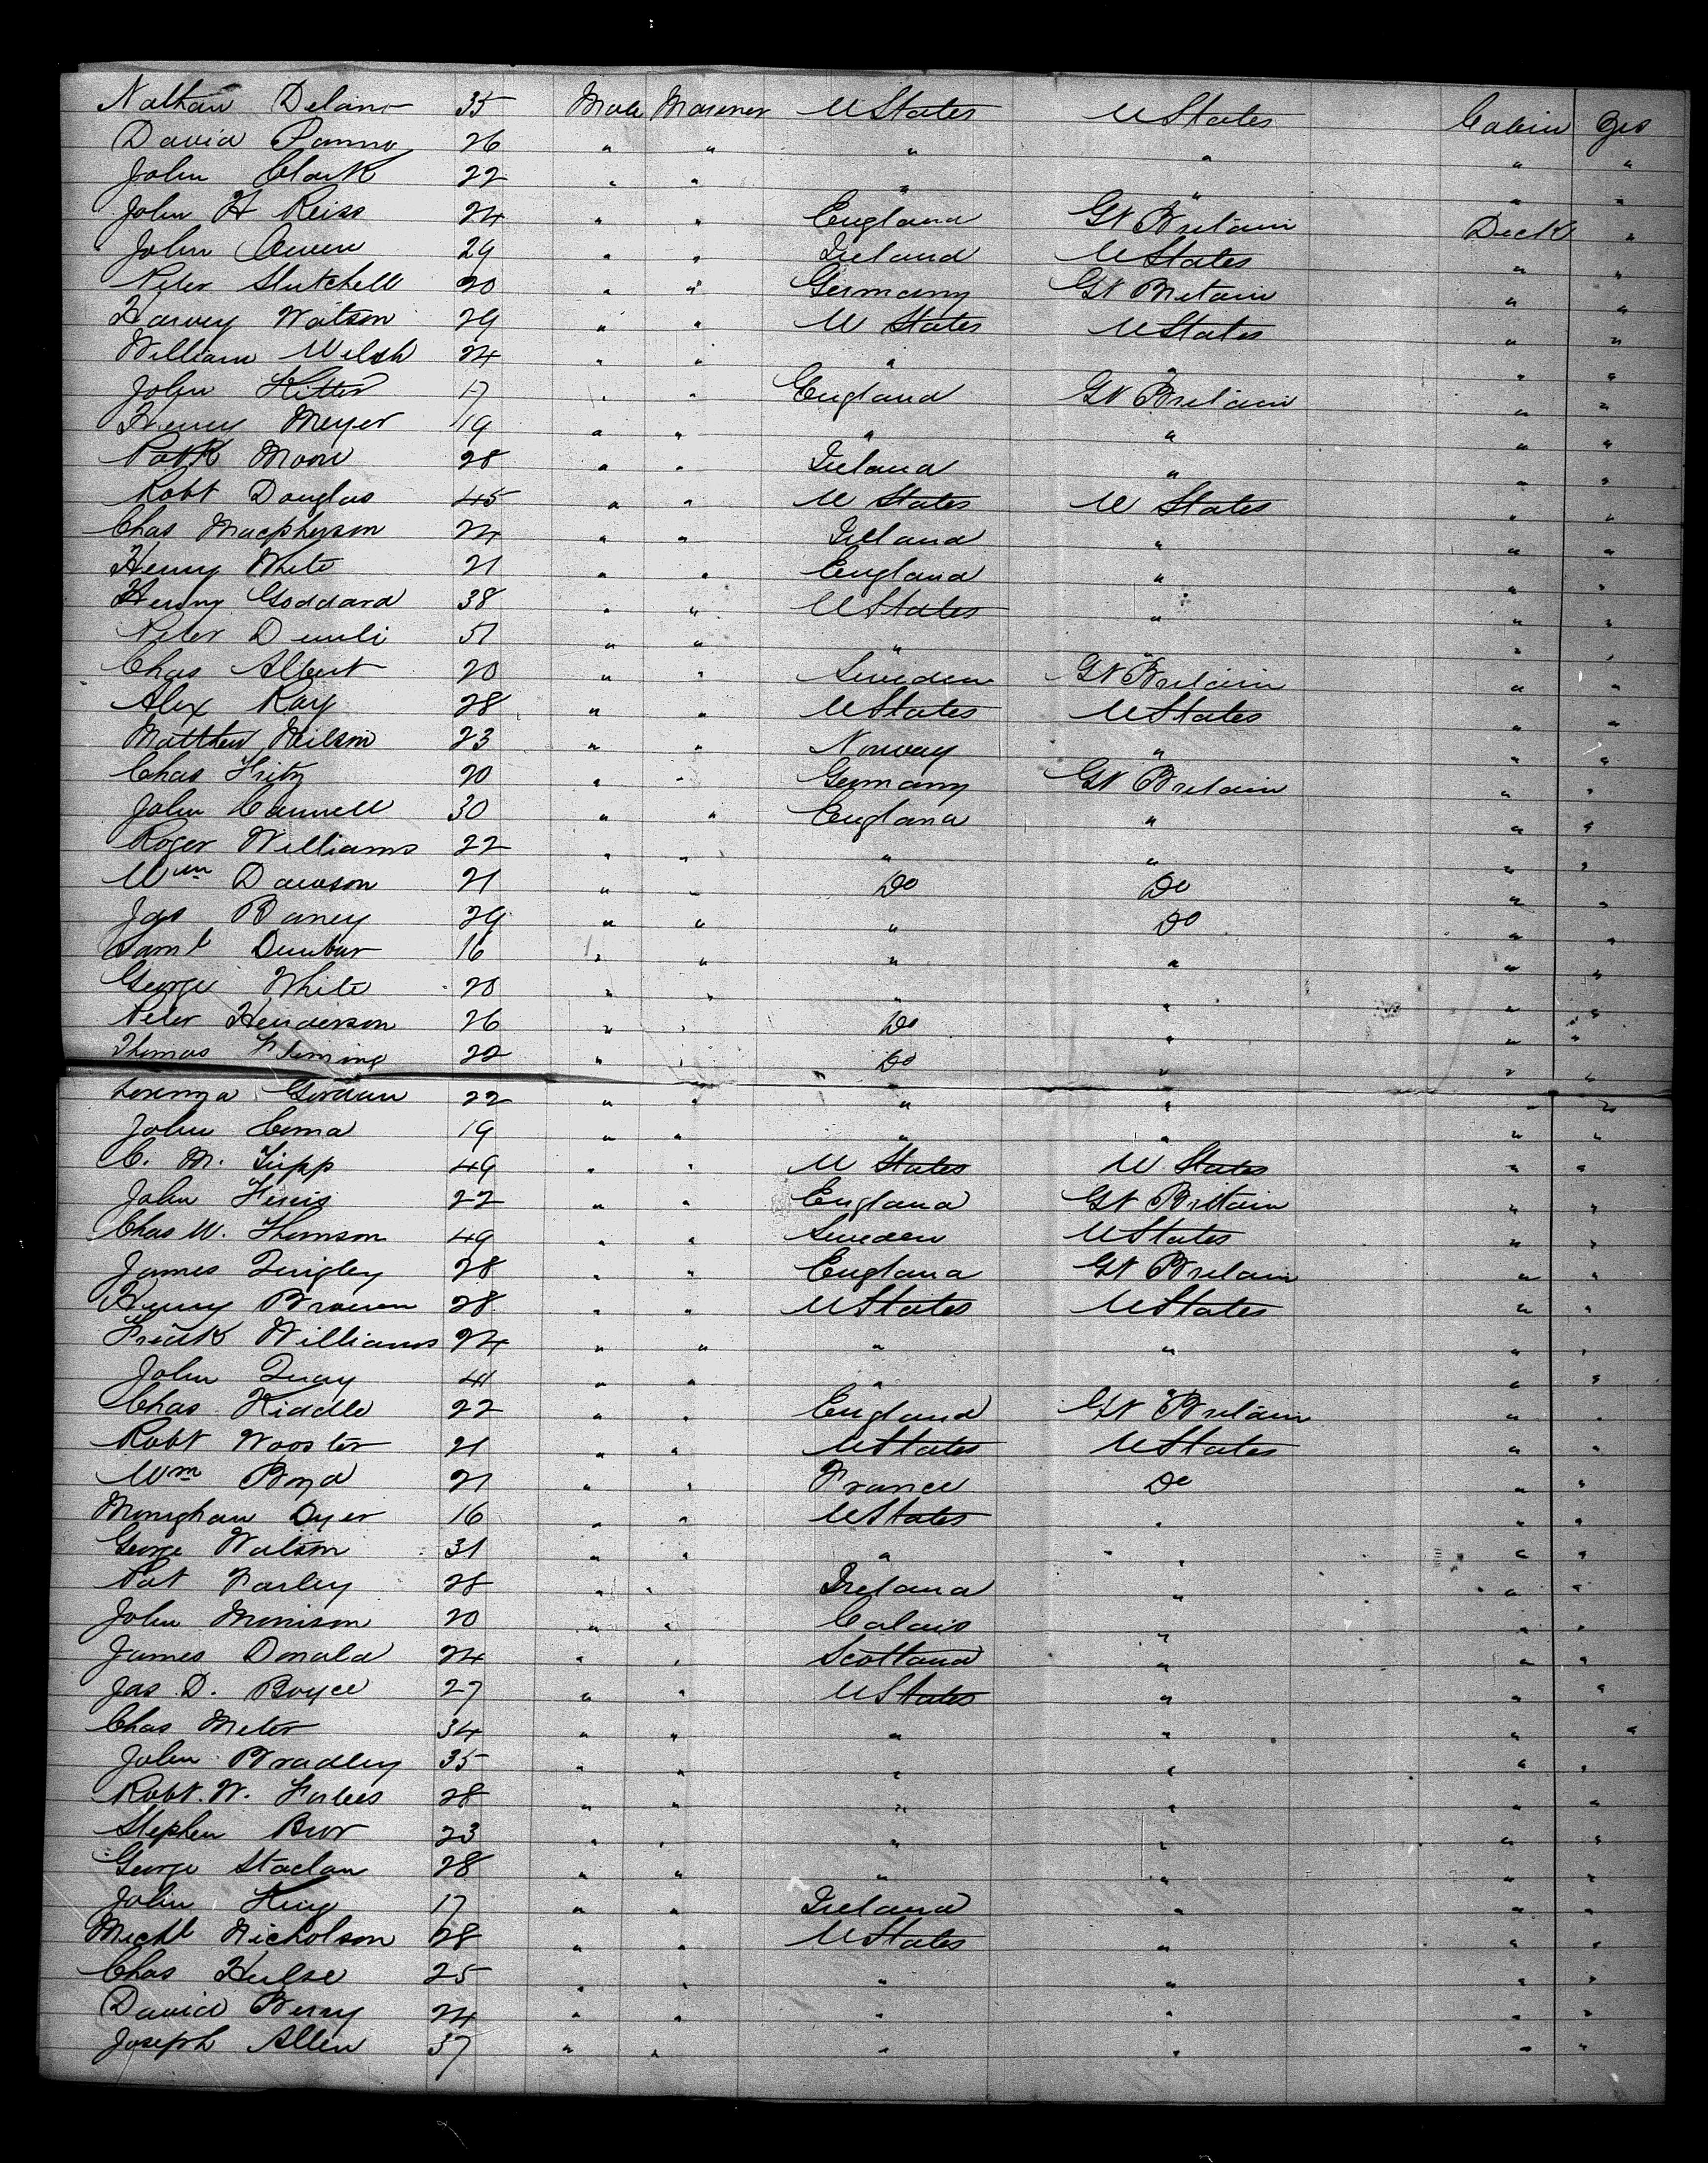 Nathan Delano 35 Male Mariner U States U States Cabin Yes
David 26 " " " " " "
John Clark 22 " " " " " "
John H Reiss 24 " " England Gt Britain Deck "
John Owen 29 " " Ireland U States " "
Peter Slutchell 20 " " Germany Gt Britain " "
Harvey Watson 29 " " U States U States " "
William Welsh 24 " " " " " "
John Kitter 17 " " England Gt Britain " "
Henry Meyer 19 " " " " " "
Patk Moore 28 " " Ireland " " "
Robt Douglas 45 " " U States U States " "
Chas Macpherson 24 " " Ireland " " "
Henry White 21 " " England " " "
Henry Goddard 38 " " U States " " "
Peter 51 " " " " " "
Chas Albert 20 " " Sweden Gt Britain " "
Alex Ray 28 " " U States U States " "
Matthew Neilson 23 " " Norway " " "
Chas Fritz 20 " " Germany Gt Britain " "
John Cannell 30 " " England " " "
Roger Williams 22 " " " " " "
Wm Dawson 21 " " Do Do " "
Jas Raney 29 " " " Do " "
Saml Dunbar 16 " " " " " "
George White 20 " " " " " "
Peter Henderson 26 " " Do " " "
Thomas Fleming 22 " " Do " " "
Lorenza Gordan 22 " " " " " "
John 19 " " " " " "
C. M. Tripp 49 " " U States U States " "
John Ferris 22 " " England Gt Brittain " "
Chas W. Thomson 49 " " Sweden U States " "
James Quigley 28 " " England Gt Britain " "
Henry Brown 28 " " U States U States " "
Frank Williams 24 " " " " " "
John Quay 41 " " " " " "
Chas Kiddle 22 " " England Gt Britain " "
Robt Wooster 21 " " U States U States " "
Wm Boyd 21 " " France Do " "
Monighan Dyer 16 " " U States " " "
George Watson 31 " " " " " "
Pat Farley 28 " " Ireland " " "
John Morrison 20 " " Calais " " "
James Donald 24 " " Scotland " " "
Jas D. Boyce 27 " " U States " " "
Chas Meter 34 " " " " " "
John Bradley 35 " " " " " "
Robt. W. Forbes 28 " " " " " "
Stephen Burr 23 " " " " " "
George Staclan 28 " " " " " "
John King 17 " " Ireland " " "
Michl Nicholson 28 " " U States " " "
Chas Hulse 25 " " " " " "
David Berry 24 " " " " " "
Joseph Allen 37 " " " " " "